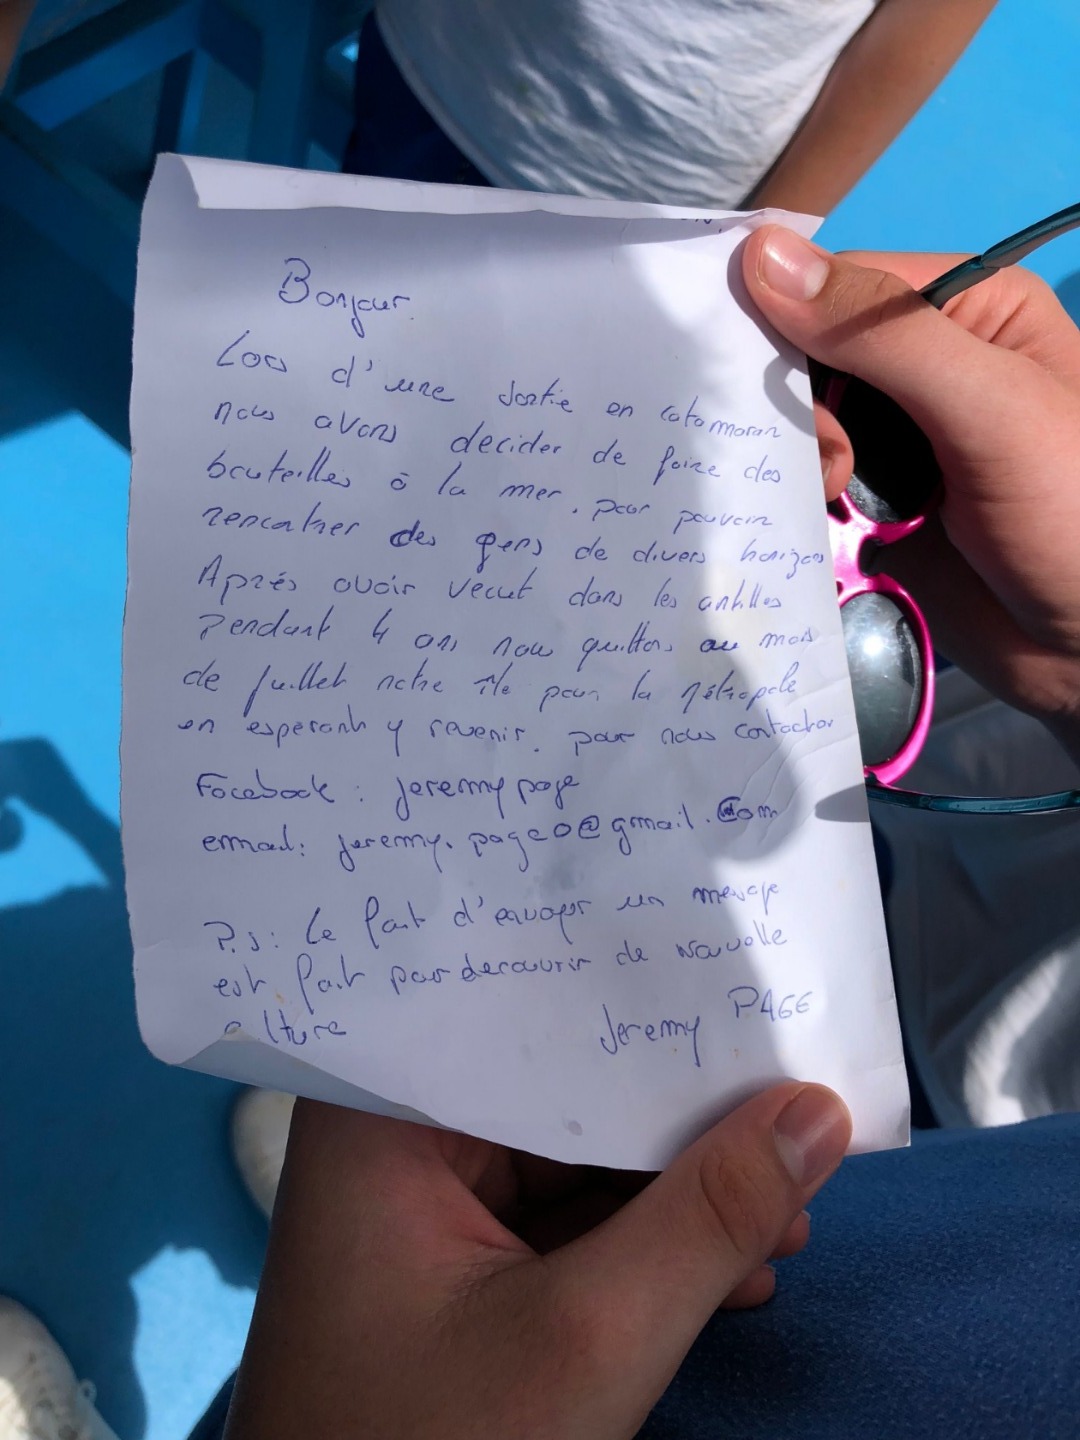 Bonjour.
Lors d'une sortie en catamaran
nous avons decider de faire des
bouteilles à la mer. pour pouvoir
rencontrer des gens de divers horizons
Après avoir vecut dans les antilles
Pendant 4 ans nous quittons au mois
de juillet notre île pour la métropole
en esperant y revenir. pour nous contacter
Facebook : jeremy page
email: jeremy.page0@gmail.com
P.S: Le fait d'envoyer un message
est fait pour decouvrir de nouvelle
culture
Jeremy PAGE